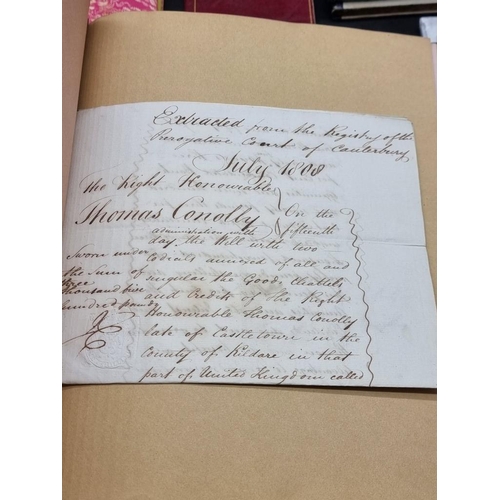 Extracted from the Registry of the
Prerogative Court of Canterbury
July 1808
The Right Honourable
Thomas Conolly
On the
fifteenth
administration with
day, the Will with two
Codicils annexed of all and
singular the Goods Chattels
and Credits of the Right
Honourable Thomas Conolly
late of Castletown in the
County of Kildare in that
part of United Kingdom called
Sworn under
the Sum of
thousand five
hundred pounds